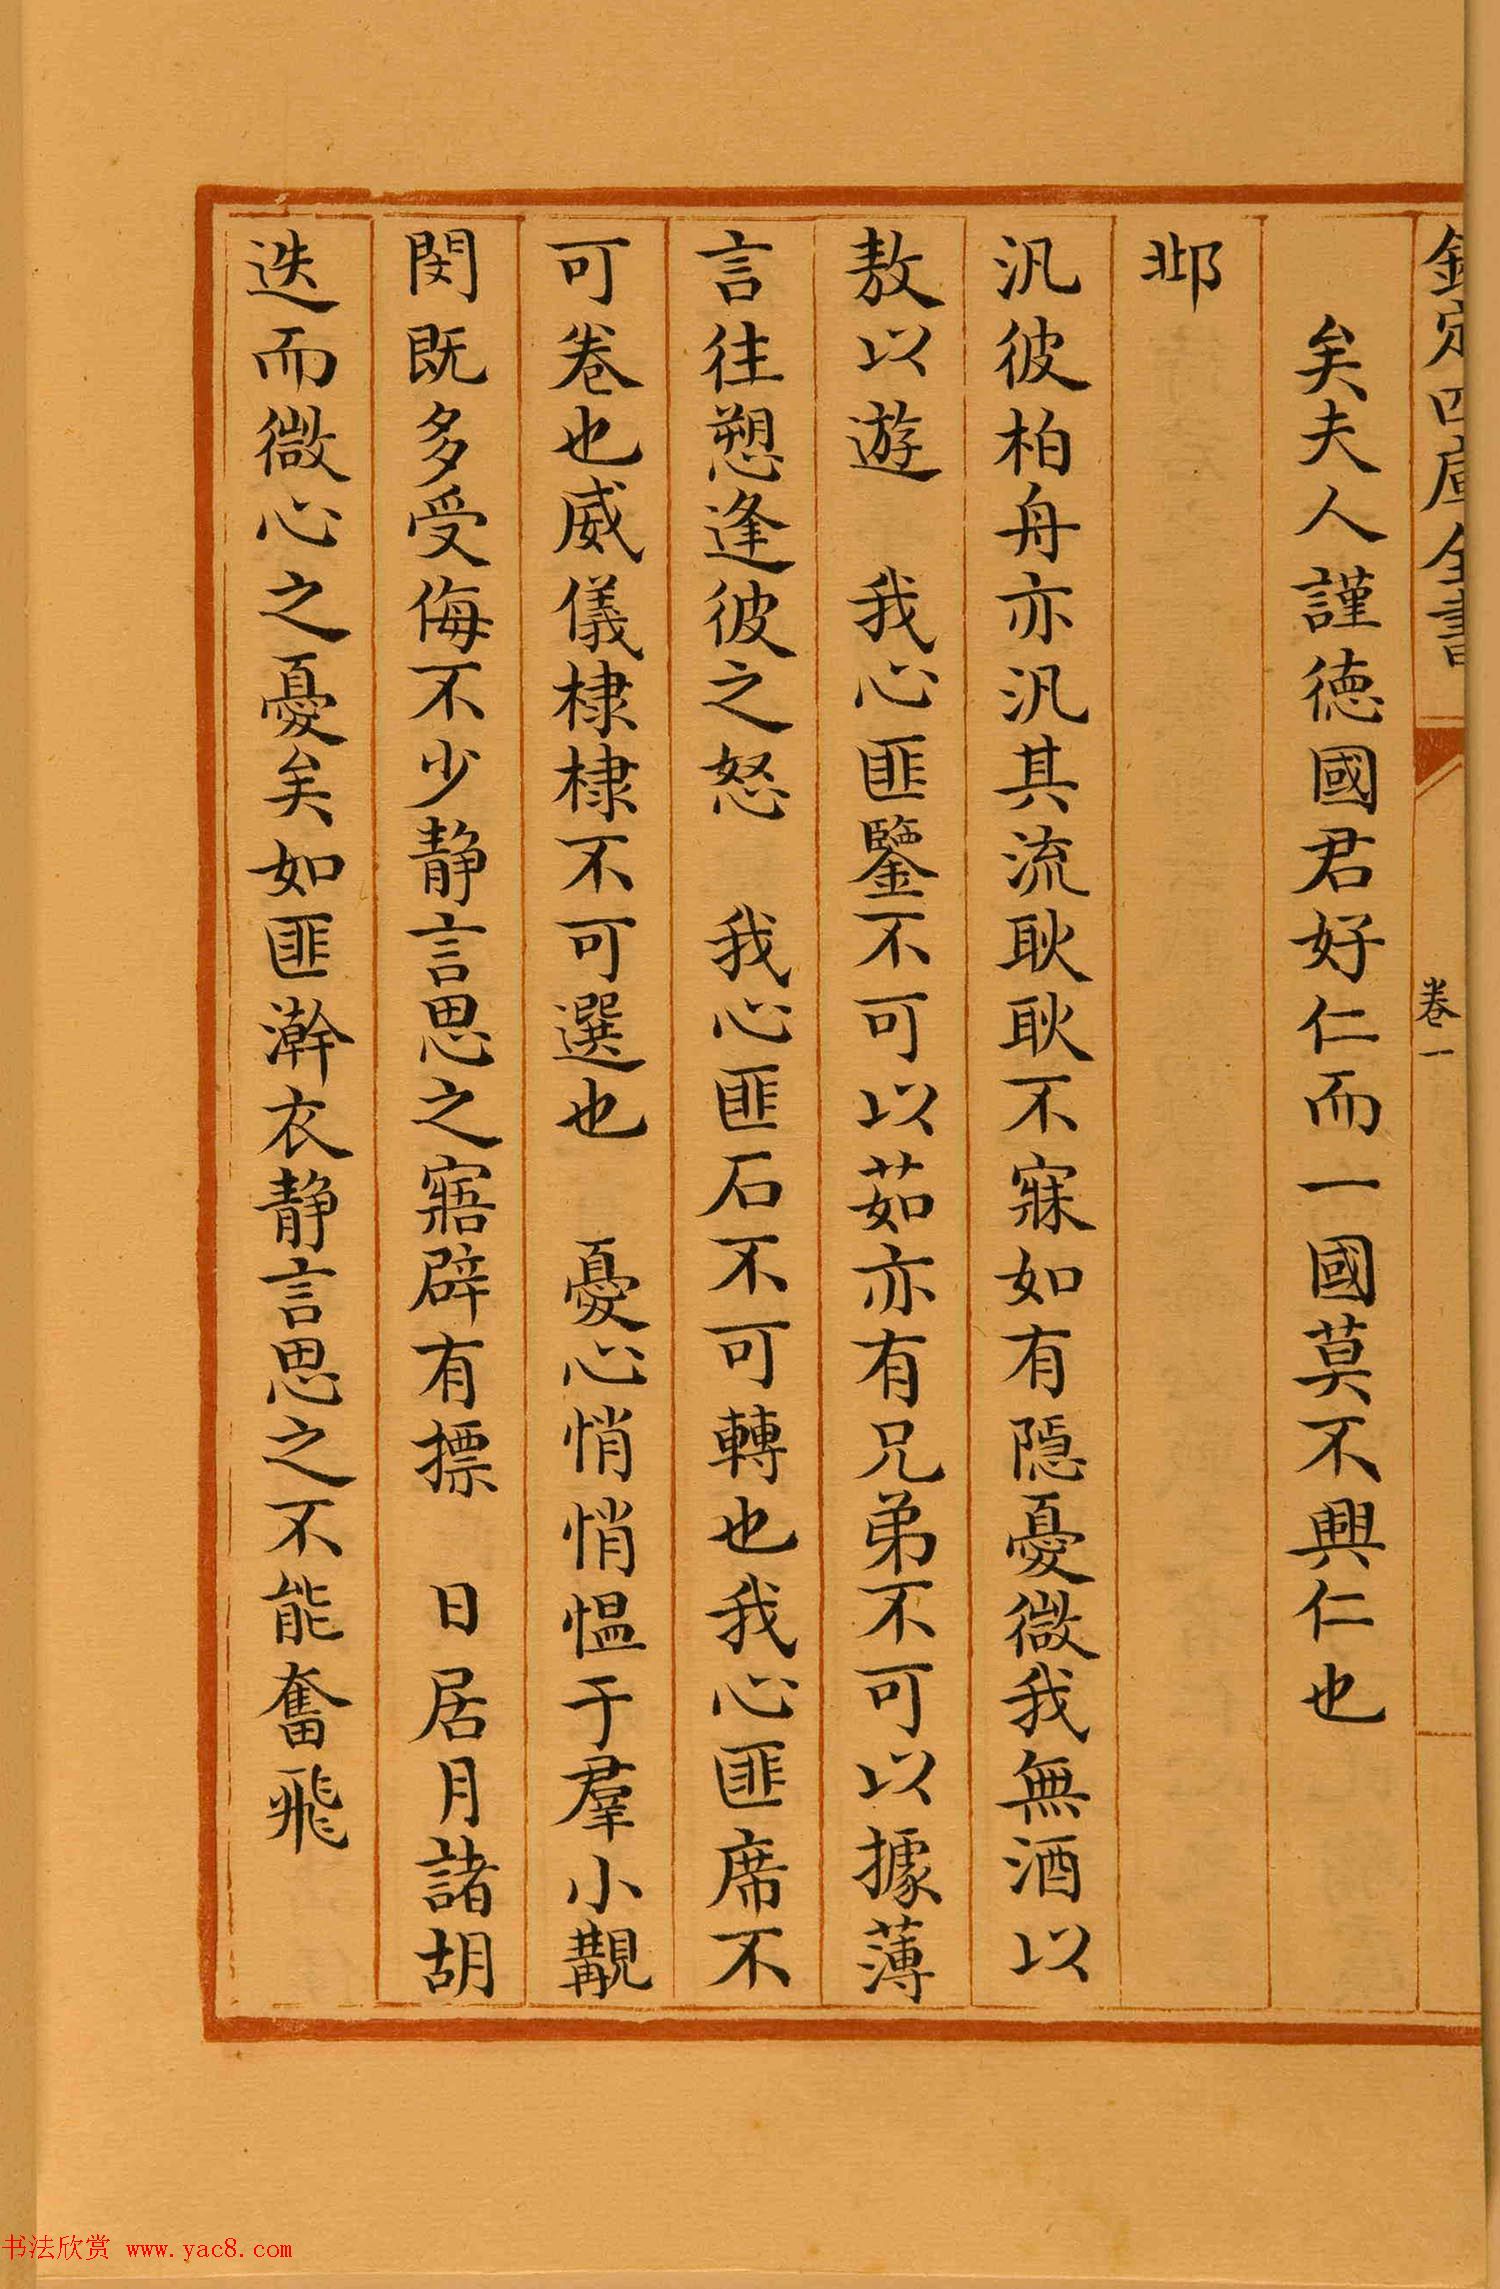 欽定四庫全書
卷一
矣夫人謹德國君好仁而一國莫不興仁也
邶
汎彼柏舟亦汎其流耿耿不寐如有隱憂微我無酒以
敖以遊　我心匪鑒不可以茹亦有兄弟不可以據薄
言往愬逢彼之怒　我心匪石不可轉也我心匪席不
可卷也威儀棣棣不可選也　憂心悄悄愠于羣小覯
閔既多受侮不少靜言思之寤辟有摽　日居月諸胡
迭而微心之憂矣如匪澣衣靜言思之不能奮飛
书法欣赏 www.yac8.com